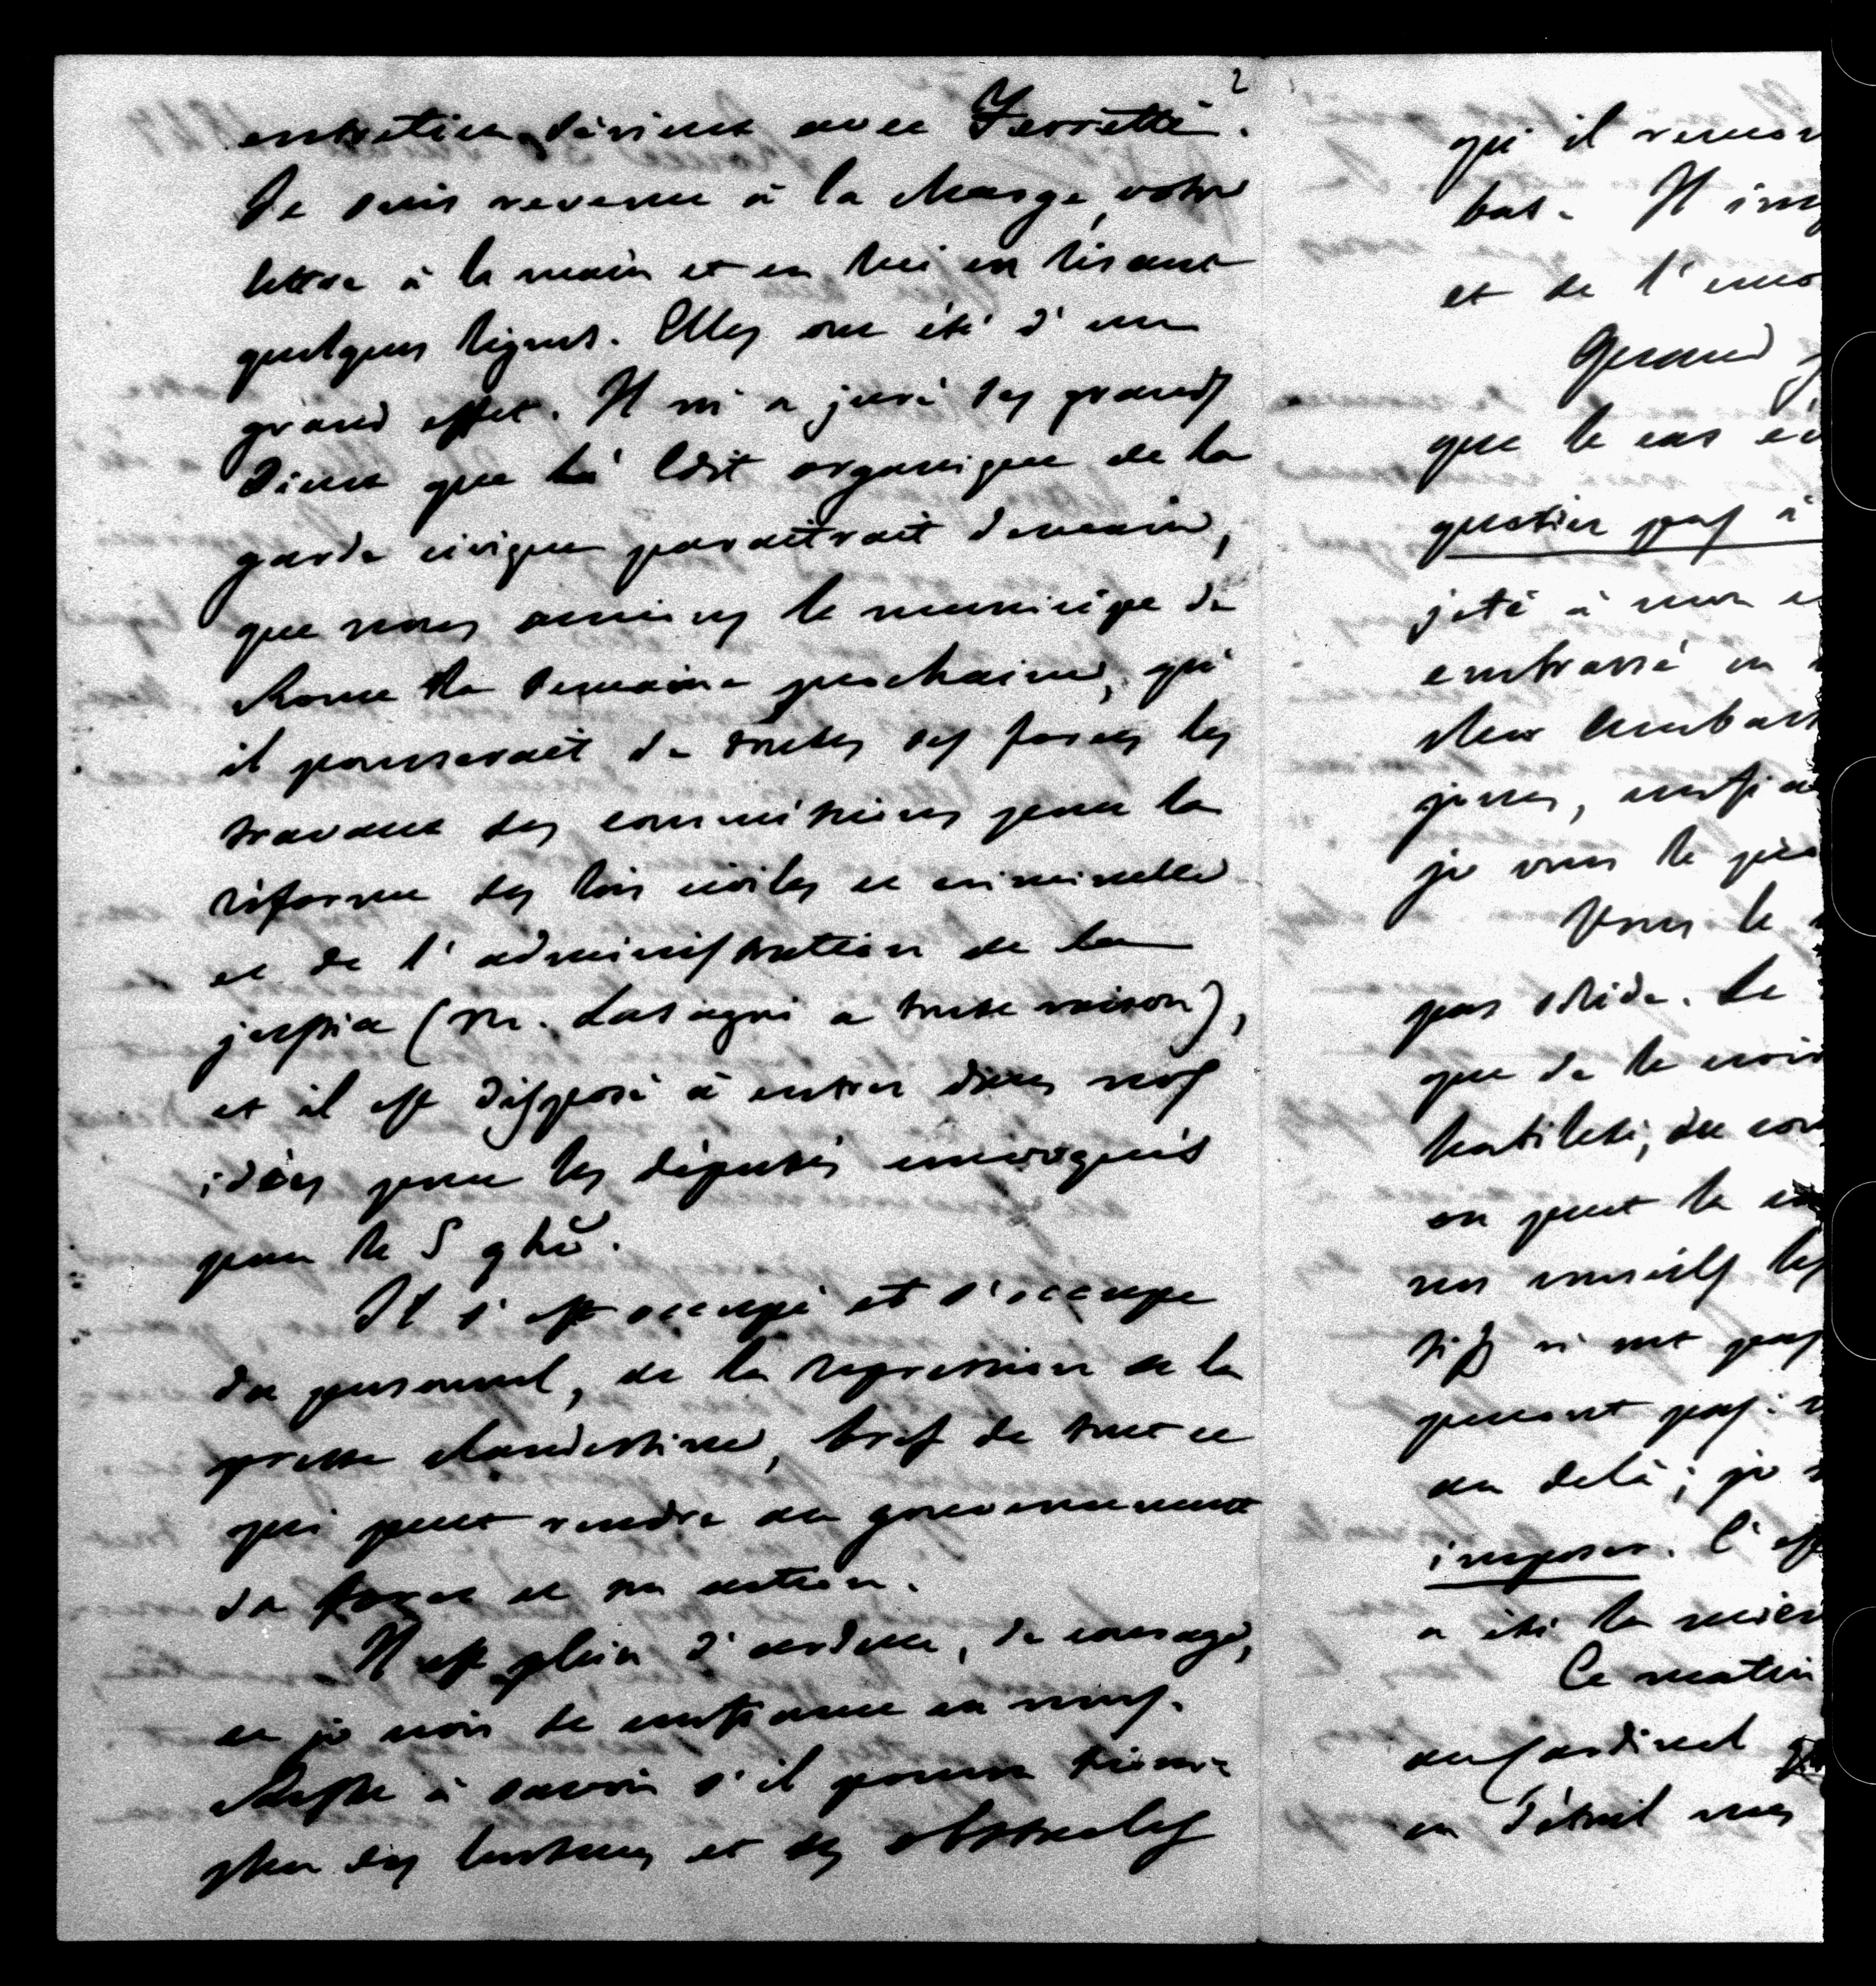 2
entretien sérieux avec Ferretti.
Je suis revenu à la charge, votre
lettre à la main et en lui en lisant
quelques lignes. Elles ont été d'un
grand effet. Il m'a juré ses grands
Dieux que l'Edit organique de la
garde civique paraitrait demain,
que nous aurions le municipe de
Rome la semaine prochaine, qu'
il pousserait de toutes ses forces les
travaux des commissions pour la
réforme des lois civiles et criminelles
et de l'administration de la
justice (M. Lasagni a toute raison),
et il est disposé à entrer dans nos
idées pour les députés convoqués
pour le 5 9bre.
Il s'est occupé et s'occupe
du personnel, de la repression de la
presse clandestine, bref de tout ce
qui peut rendre au gouvernement
sa force et son action.
Il est plein d'ardeur, de courage,
et je crois de confiance en nous.
Reste à savoir s'il pourra triom-
pher des lenteurs et des obstacles
qu'il
bas. Il
et de l'
Quand
que le cas
question pas à
jeté à mon
embrassé en
cher
jours,
je vous le
Vous le
pas solide. Le
que de le
habileté, du
on peut le
nos conseils les
n'ont pas
pas:
au delà; je
imposer. C'est
a été la
Ce matin
au Cardinal
en détail mes